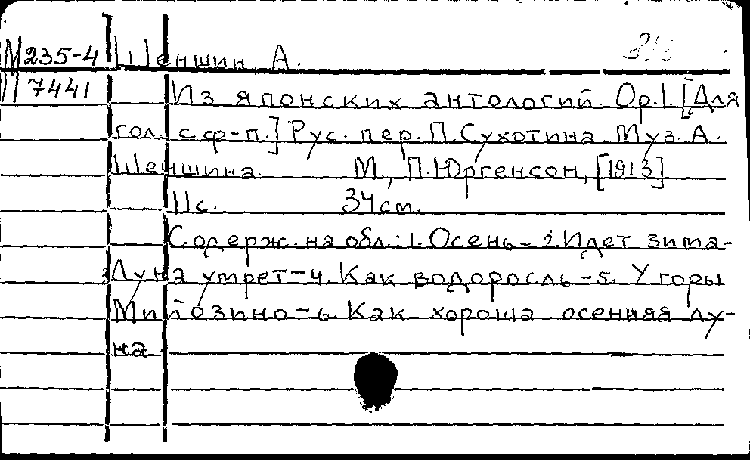 М 235-4 Шеншин А.
П 7441 Из японских антологий. Op.1. [Для
гол. с ф-п.] Рус. пер. П. Сухотина. Муз. А.
Шеншина. М., П. Юргенсон, [1913]
11с. 34см.
Содерж. на обл.: 1. Осень - 2. Идет зима-
3. Луна умрет - 4. Как водоросль - 5. У горы
Мийозино - 6. Как хороша осенняя лу-
на